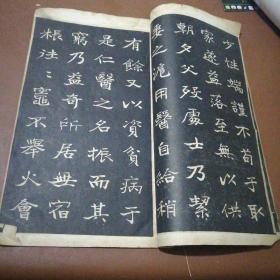 少性端謹不苟于取
家遂益落至無以供
朝夕父歿處士乃挈
妻之滬用醫自給稍
有餘又以資貧病于
是仁醫之名振而其
窮乃益奇所居無宿
粻往〻竈不舉火會